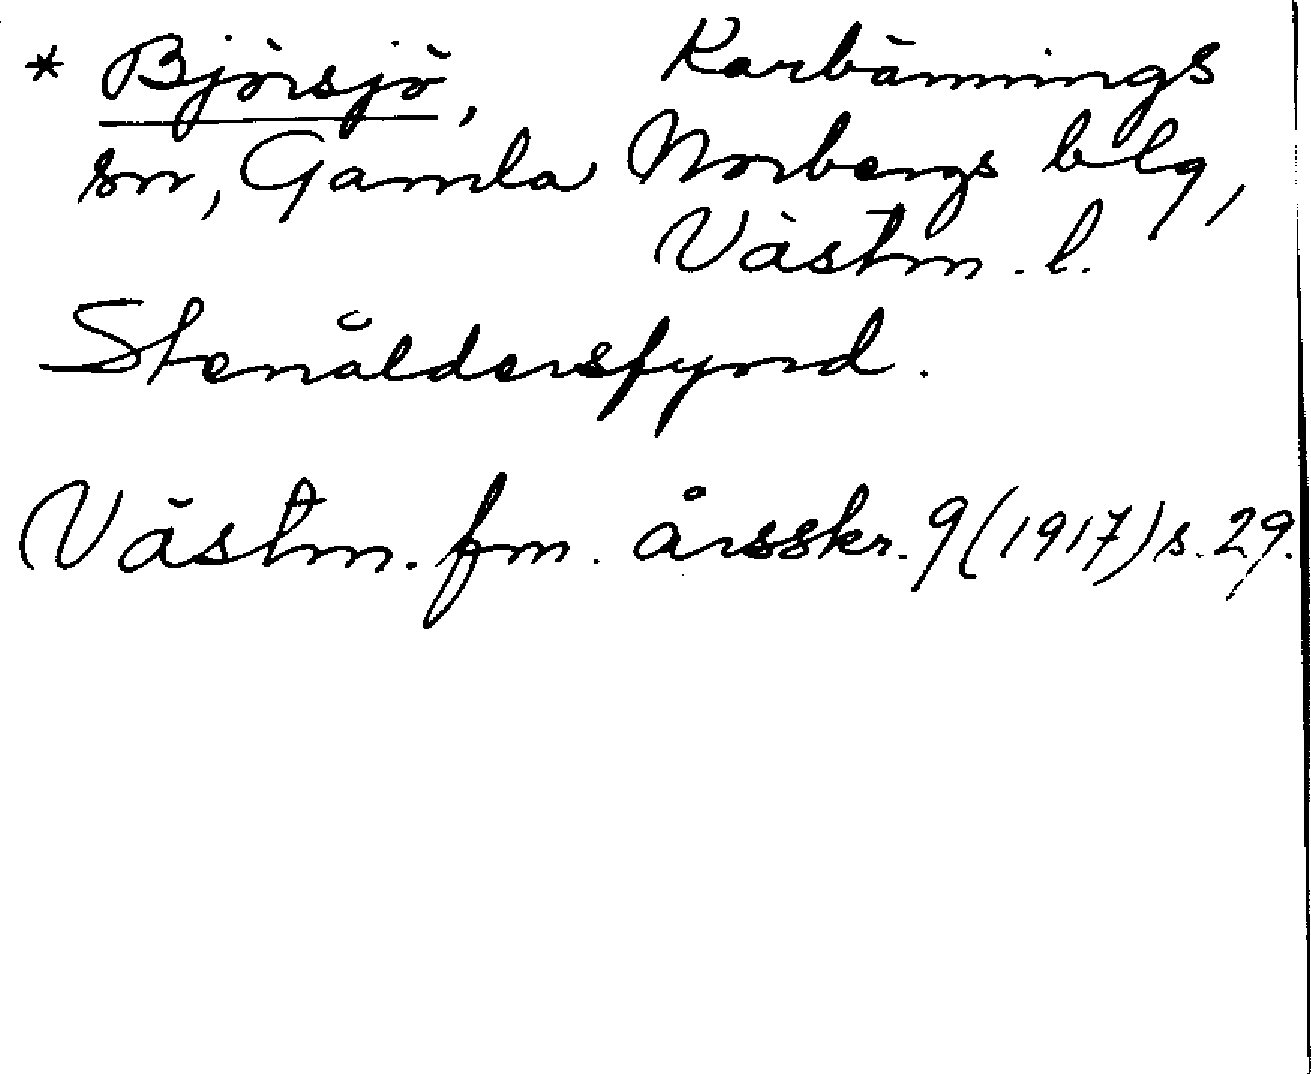 * Björsjö, Karbännings
sn, Gamla Norbergs blg,
Västm. l.
Stenåldersfynd.
Västm. fm. årsskr. 9 (1917) s. 29.